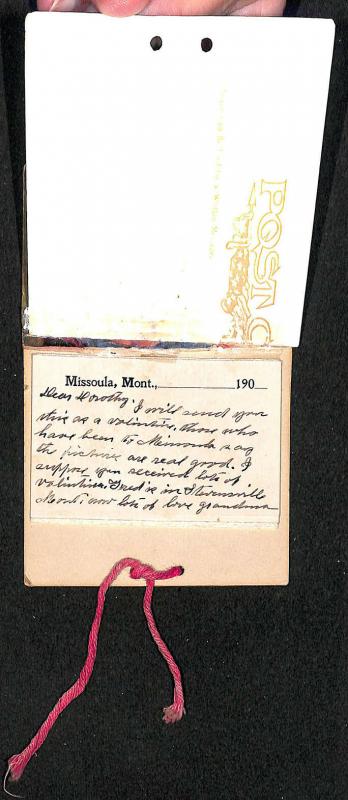 POST C
Missoula, Mont., 190
Dear Dorothy. I will send you
this as a valintine. those who
have been to Missoula say
the pictures are real good. I
suppose you received lots of
valintines. Fred is in Stevensville
Mont. now lots of love grandma